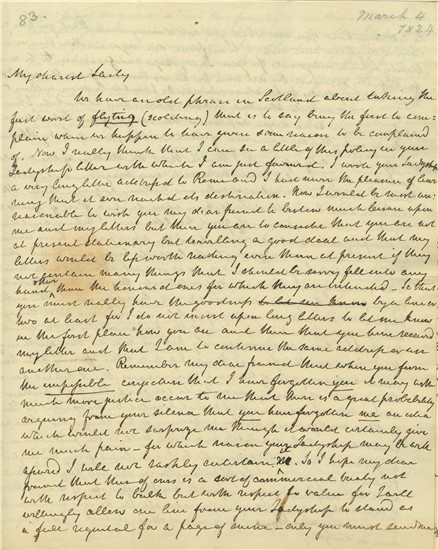 83.
March 4
1824
My dearest Lady
We have an old phrase in Scotland about taking the
first word of flyting (scolding) that is to say being the first to com=
plain when we happen to have given some reason to be complained
of. Now I really think that I can see a little of this policy in your
Ladyships letter with which I am just favourd. I wrote your Ladyship
a very long letter addressd to Rome and I had never the pleasure of lear
ning that it even reachd its destination. Now I would be most un=
reasonable to wish you my dear friend to bestow much leisure upon
me and my letters but then you are to consider that you are not
at present stationary but travelling a good deal and that my
letters would be less worth reading even than at present if they
not contain many things that I should be sorry fell into any
hand other than the honourd ones for which they are intended. So that
you must really have the goodness to let me know by a line or
two at least for I do not insist upon long letters to let me know
in the first place how you are and then that you have received
my letter and that I am to continue the same address or use
another one. Remember my dear friend that when you form
the impossible conjecture that I have forgotten you it may with
much more justice occur to me that there is a great probability
arguing from your silence that you have forgotten me an idea
which would not surprize me though it would certainly give
me much pain - for which reason your Ladyship may be well
assured I will not rashly entertain it. So I hope my dear
friend that this of ours is a sort of commercial treaty not
with respect to bulk but with respect to value for I will
willingly allow one line from your Ladyship to stand as
a full requital for a page of mine - only you must send me